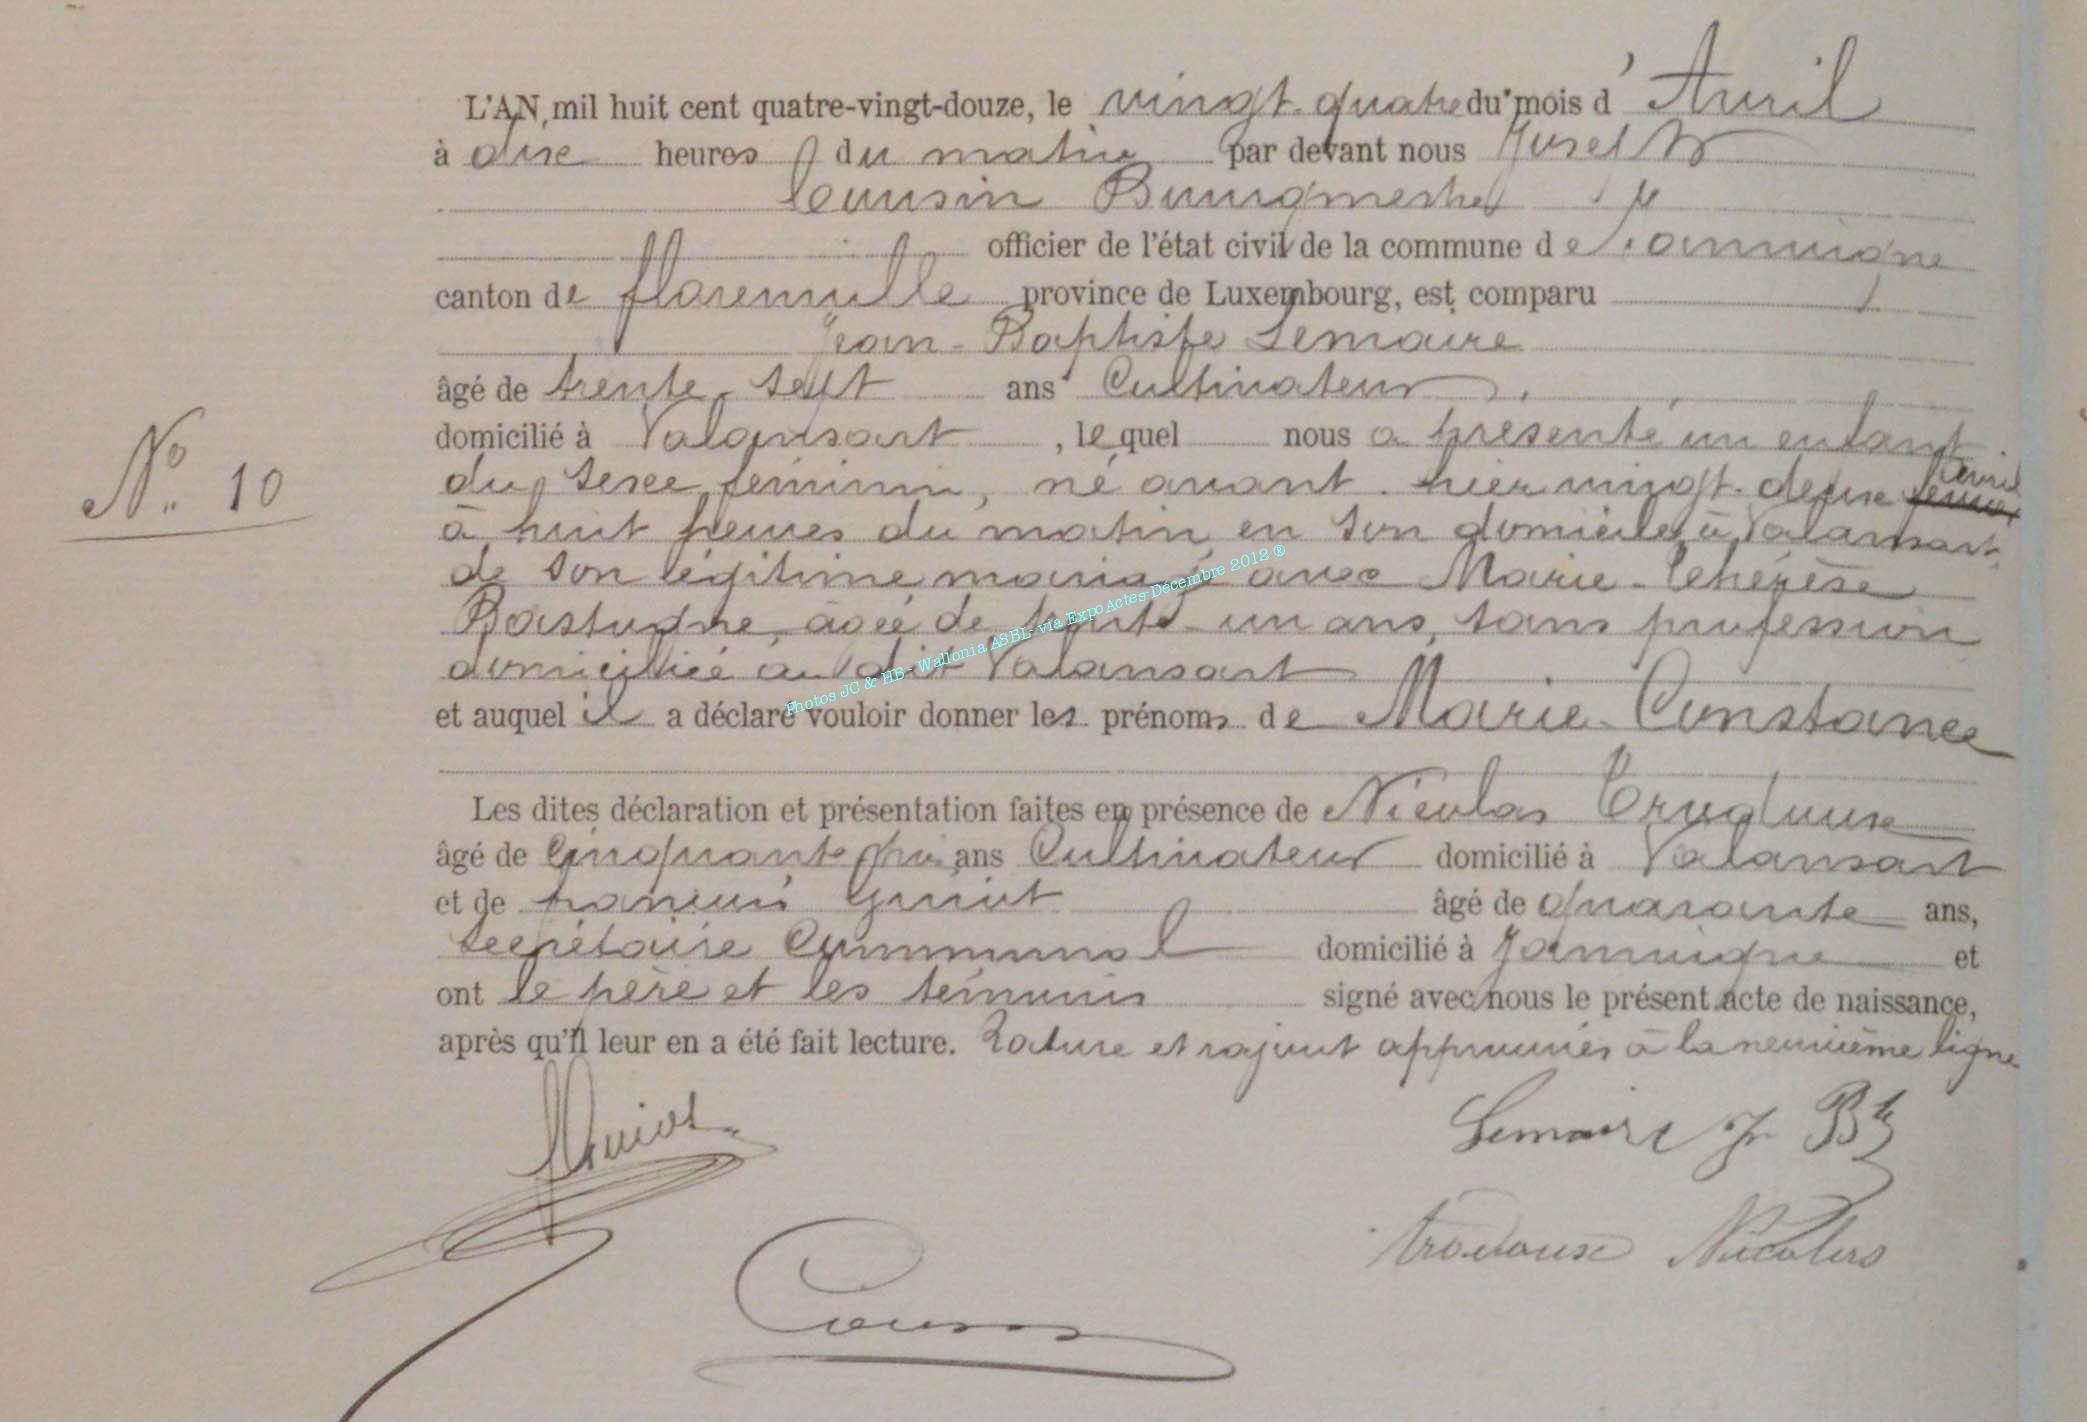 L'AN mil huit cent quatre-vingt-douze, le vingt-quatre du mois d'Avril
à dix heures du matin par devant nous Joseph
Cousin Bourgmestre
officier de l'état civil de la commune de Jamoigne
canton de florenville province de Luxembourg, est comparu
Jean-Baptiste Lemaire
âgé de trente-sept ans Cultivateur,
domicilié à Valansart, lequel nous a présenté un enfant
du sexe féminin, né avant-hier vingt-deux avril
à huit heures du matin en son domicile à Valansart,
de son légitime mariage avec Marie-Thérèse
Bastogne, âgée de trente-un ans, sans profession
domiciliée au dit Valansart
et auquel il a déclaré vouloir donner les prénoms de Marie-Constance
Les dites déclaration et présentation faites en présence de Nicolas Trodoux
âgé de Cinquante ans Cultivateur domicilié à Valansart
et de françois Guiot âgé de quarante ans,
secrétaire Communal domicilié à Jamoigne et
ont le père et les témoins signé avec nous le présent acte de naissance,
après qu'il leur en a été fait lecture. Rature et rajout approuvés à la neuvième ligne
N° 10
Guiot
Lemaire Jn Bte
trodoux Nicolas
Cousin
Photos JC & HB - Wallonia ASBL- via ExpoActes-Décembre 2012 ®